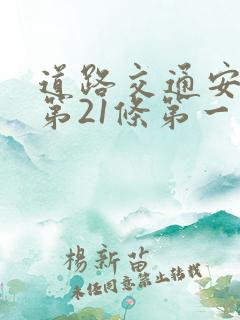 道路交通安
第21條第一
楊新苗
未經同意禁止轉載